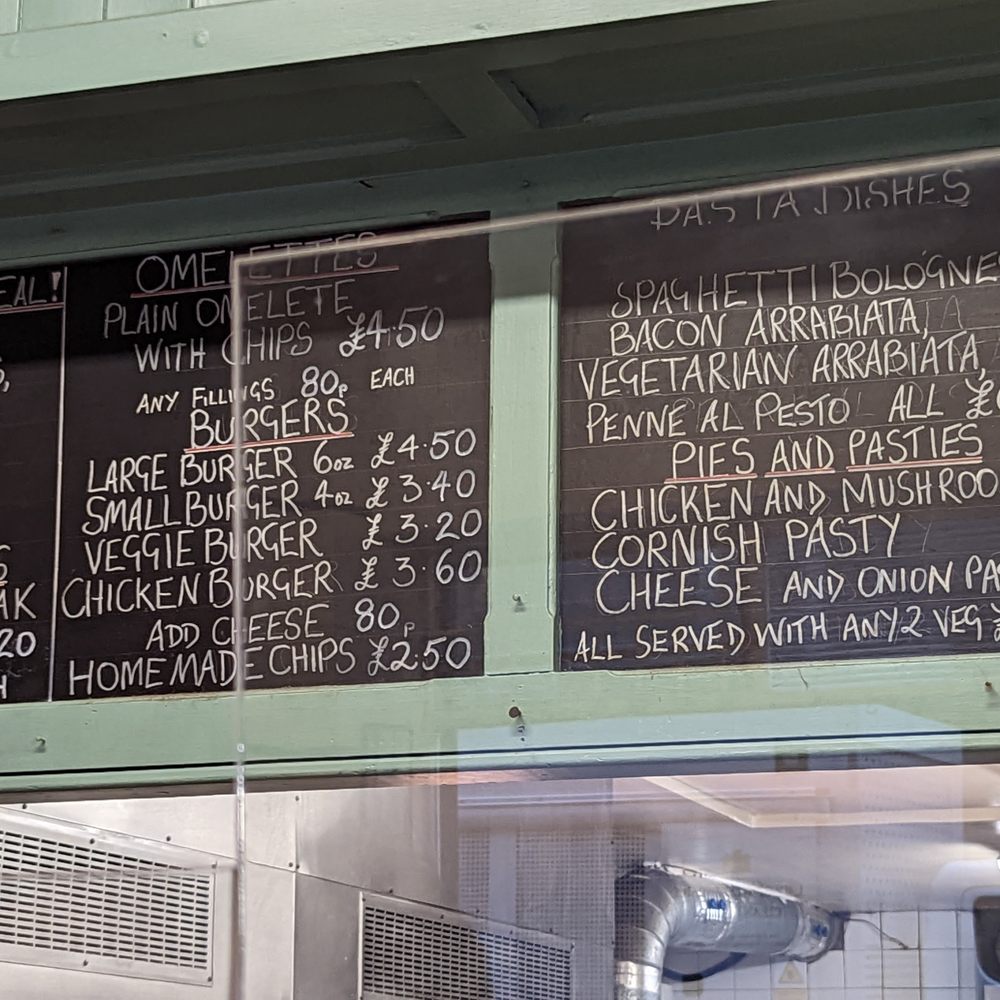 EAL!
AK
20
H
OMELETTES
PLAIN OMELETE
WITH CHIPS £4.50
ANY FILLINGS 80p EACH
BURGERS
LARGE BURGER 6oz £4.50
SMALL BURGER 4oz £3.40
VEGGIE BURGER £3.20
CHICKEN BURGER £3.60
ADD CHEESE 80p
HOMEMADE CHIPS £2.50
PASTA DISHES
SPAGHETTI BOLOGNE
BACON ARRABIATA,
VEGETARIAN ARRABIATA,
PENNE AL PESTO ALL £
PIES AND PASTIES
CHICKEN AND MUSHROO
CORNISH PASTY
CHEESE AND ONION PA
ALL SERVED WITH ANY 2 VEG £